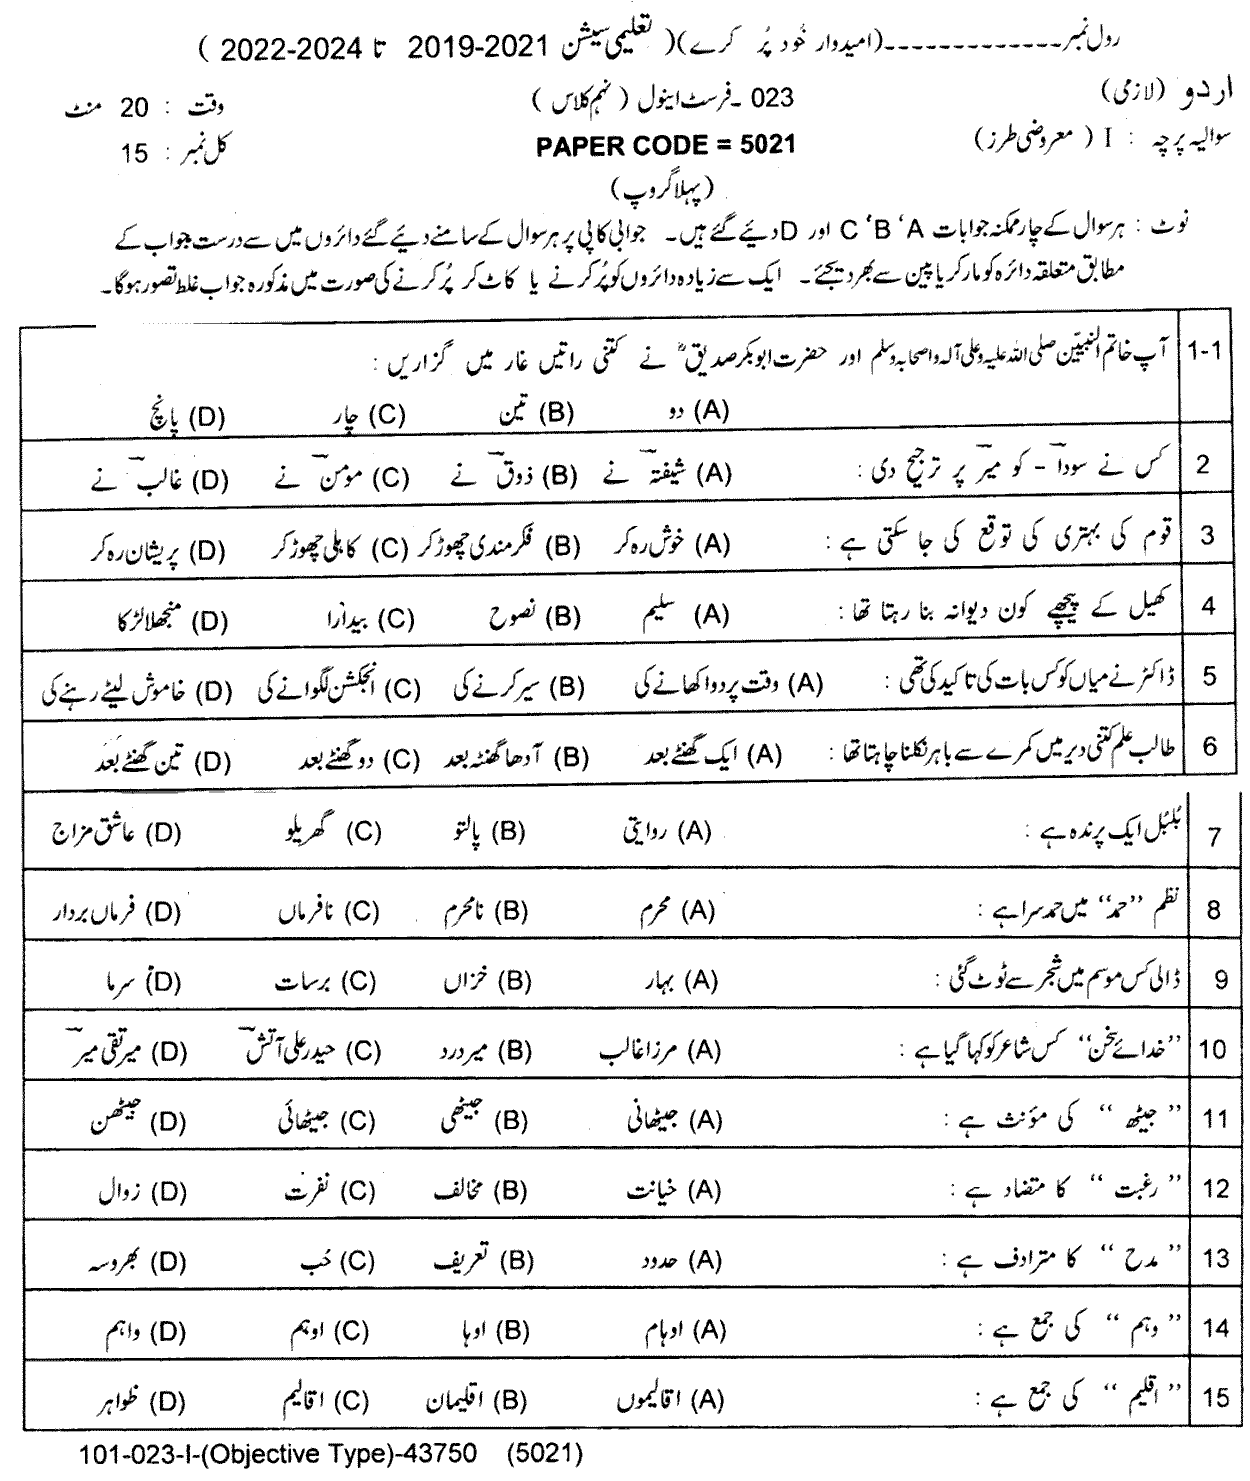 رول نمبر ------------- (امیدوار خُود پُر کرے) ( تعلیمی سیشن 2019-2021 تا 2022-2024 )
اردو (لازمی) 023 ۔ فرسٹ اینول ( نہم کلاس ) وقت : 20 منٹ
سوالیہ پرچہ : I ( معروضی طرز) PAPER CODE = 5021 کل نمبر : 15
(پہلا گروپ)
نوٹ : ہر سوال کے چار ممکنہ جوابات A ، B ، C اور D دیئے گئے ہیں۔ جوابی کاپی پر ہر سوال کے سامنے دیئے گئے دائروں میں سے درست جواب کے
مطابق متعلقہ دائرہ کو مارکر یا پین سے بھر دیجئے۔ ایک سے زیادہ دائروں کو پُر کرنے یا کاٹ کر پُر کرنے کی صورت میں مذکورہ جواب غلط تصور ہوگا۔
1-1 آپ خاتم النبیّین صلی اللہ علیہ وعلی آلہ واصحابہ وسلم اور حضرت ابوبکر صدیق ؓ نے کتنی راتیں غار میں گزاریں :
(A) دو (B) تین (C) چار (D) پانچ
2 کس نے سودا ؔ - کو میر ؔ پر ترجیح دی : (A) شیفتہ ؔ نے (B) ذوق ؔ نے (C) مومن ؔ نے (D) غالب ؔ نے
3 قوم کی بہتری کی توقع کی جا سکتی ہے : (A) خوش رہ کر (B) فکر مندی چھوڑ کر (C) کاہلی چھوڑ کر (D) پریشان رہ کر
4 کھیل کے پیچھے کون دیوانہ بنا رہتا تھا : (A) سلیم (B) نصوح (C) بیدارا (D) منجھلا لڑکا
5 ڈاکٹر نے میاں کو کس بات کی تاکید کی تھی : (A) وقت پر دوا کھانے کی (B) سیر کرنے کی (C) انجکشن لگوانے کی (D) خاموش لیٹے رہنے کی
6 طالب علم کتنی دیر میں کمرے سے باہر نکلنا چاہتا تھا : (A) ایک گھنٹے بعد (B) آدھا گھنٹہ بعد (C) دو گھنٹے بعد (D) تین گھنٹے بعد
7 بُلبُل ایک پرندہ ہے : (A) روایتی (B) پالتو (C) گھریلو (D) عاشق مزاج
8 نظم ’’حمد‘‘ میں حمد سرا ہے : (A) محرم (B) نامحرم (C) نافرماں (D) فرماں بردار
9 ڈالی کس موسم میں شجر سے ٹوٹ گئی : (A) بہار (B) خزاں (C) برسات (D) سرما
10 ’’خدائے سخن‘‘ کس شاعر کو کہا گیا ہے : (A) مرزا غالب (B) میر درد (C) حیدر علی آتش ؔ (D) میر تقی میر ؔ
11 ’’ جیٹھ ‘‘ کی مؤنث ہے : (A) جیٹھانی (B) جیٹھی (C) جیٹھائی (D) جیٹھن
12 ’’ رغبت ‘‘ کا متضاد ہے : (A) خیانت (B) مخالف (C) نفرت (D) زوال
13 ’’ مدح ‘‘ کا مترادف ہے : (A) حدود (B) تعریف (C) حُب (D) بھروسہ
14 ’’ وہم ‘‘ کی جمع ہے : (A) اوہام (B) اوہا (C) اوہم (D) واہم
15 ’’ اقلیم ‘‘ کی جمع ہے : (A) اقالیموں (B) اقلیمان (C) اقالیم (D) ظواہر
101-023-I-(Objective Type)-43750 (5021)